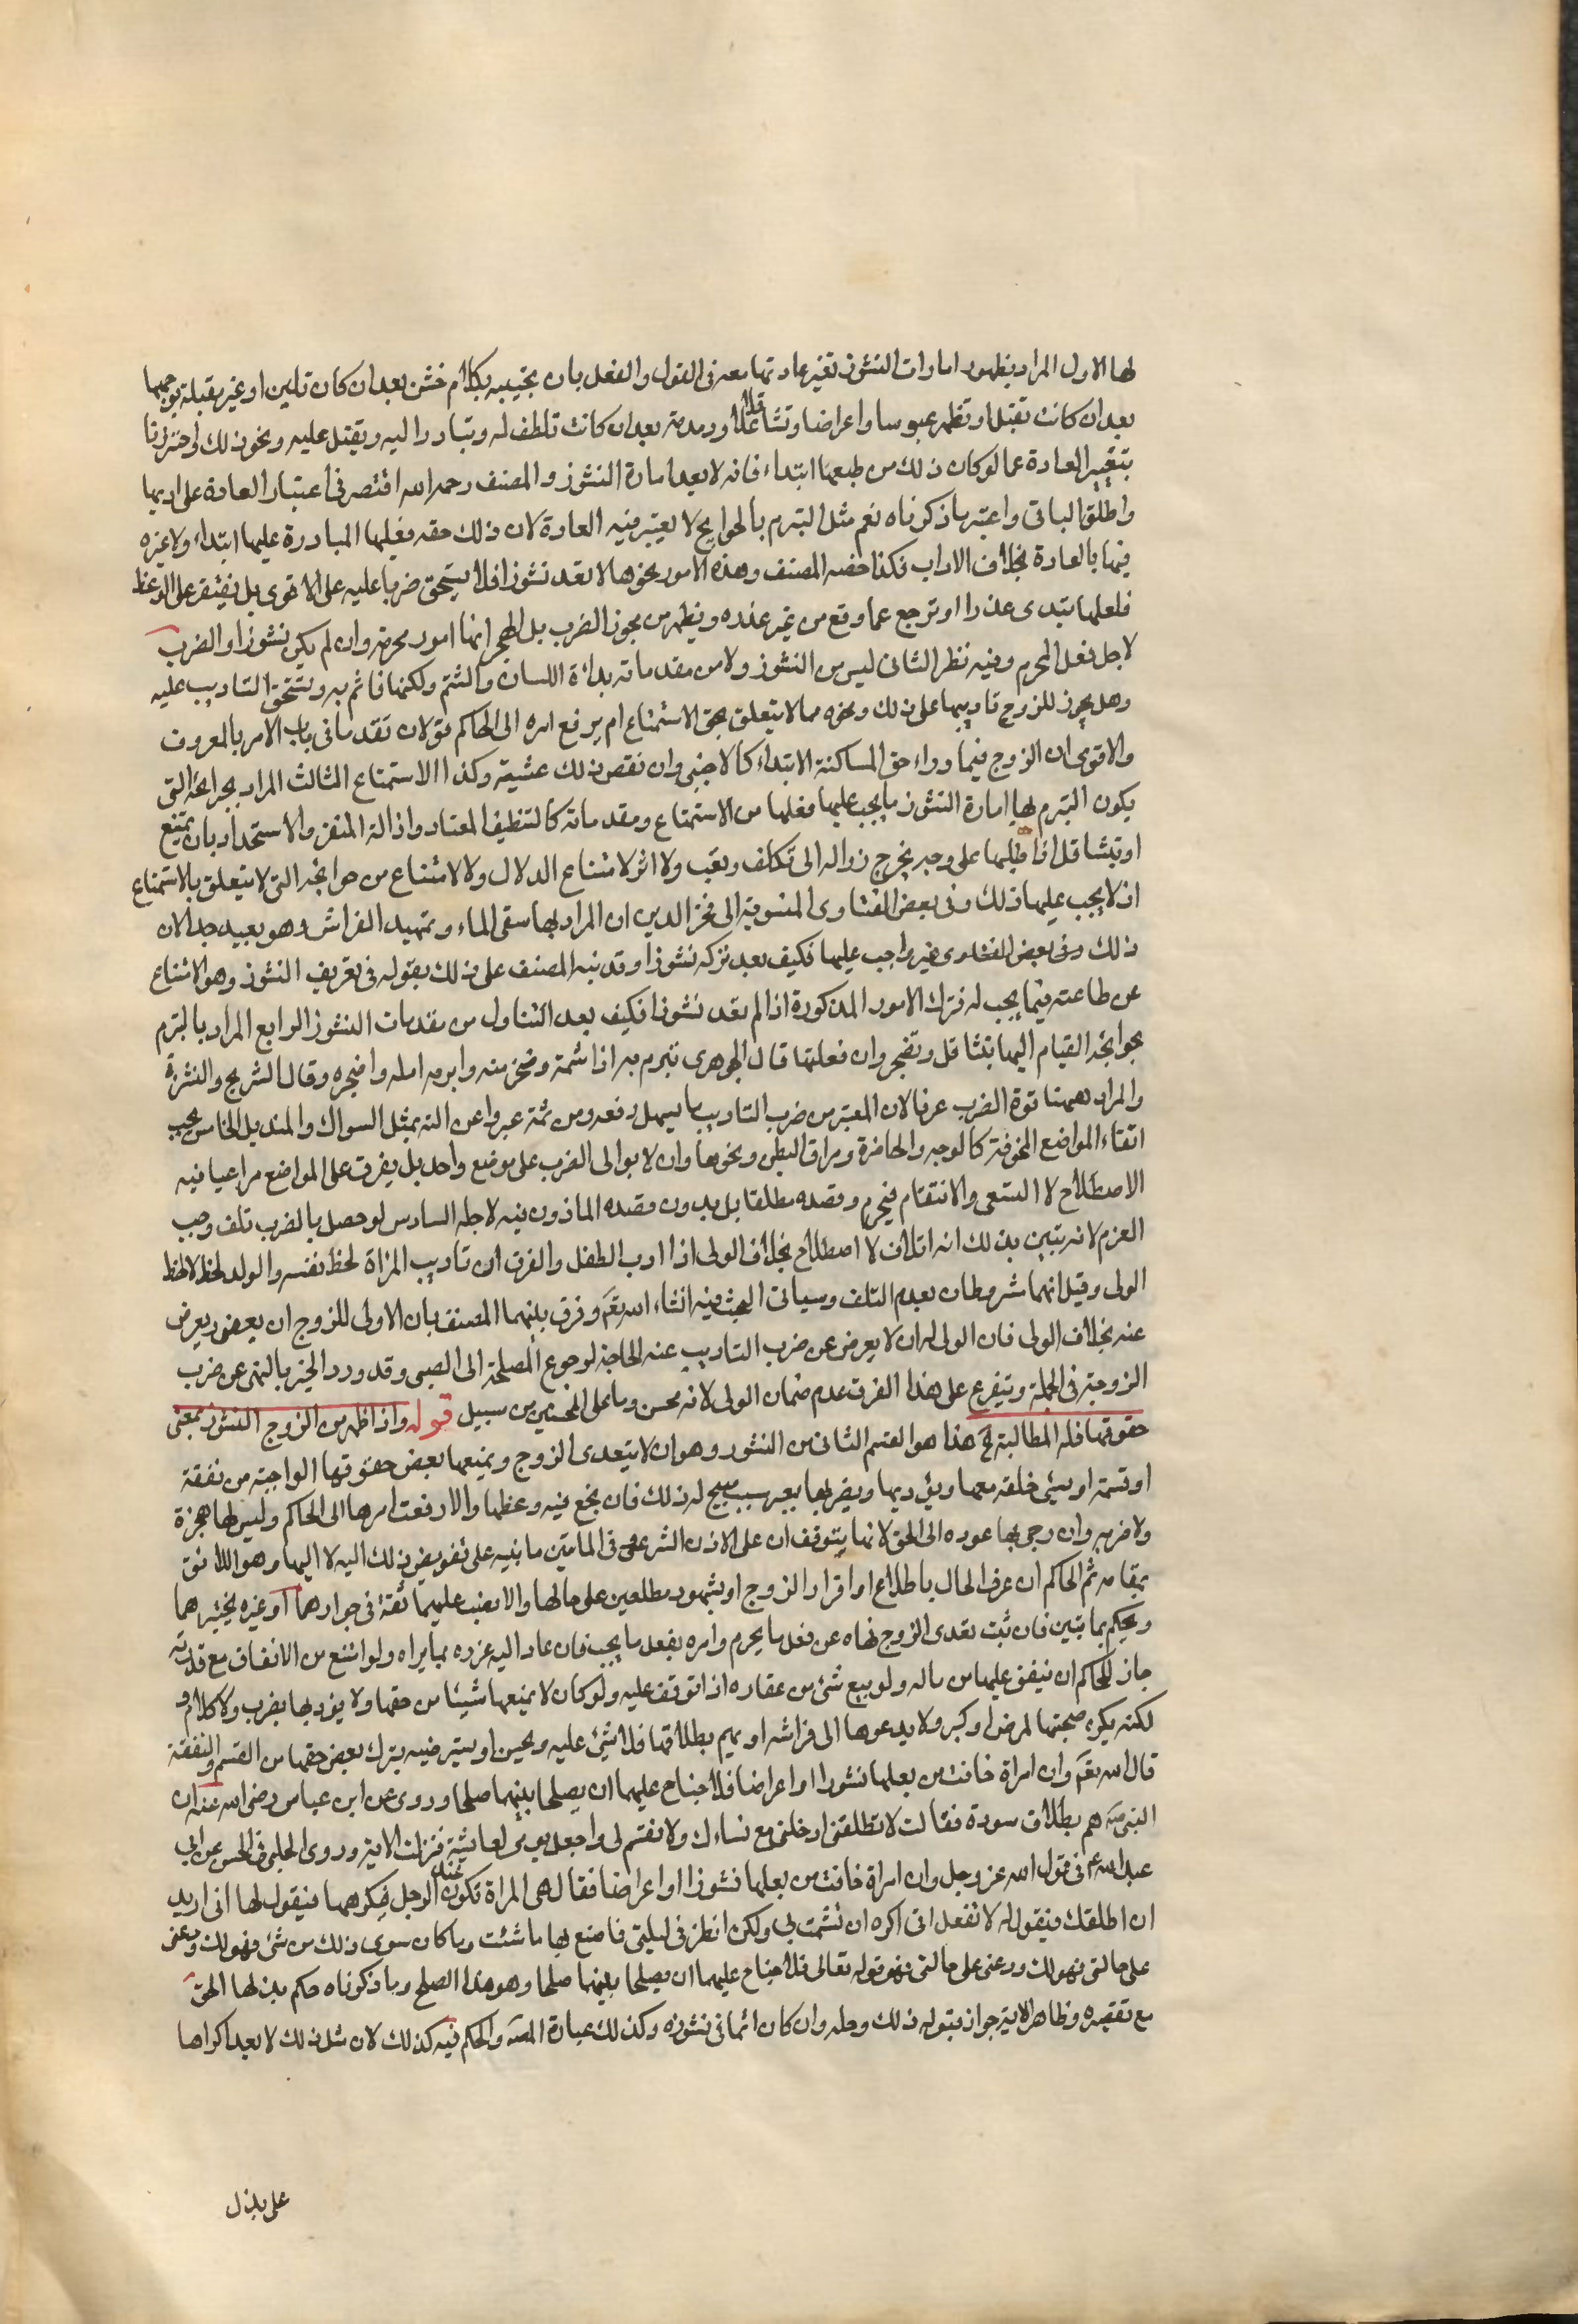 لها الاول المراد بظهور امارات النشوز تغير عادتها معه فى القول والفعل بان تجيبه بكلام خشن بعد ان كان تلين او غير مقبلة بوجهها
بعد ان كانت تقبل او تظهر عبوسا واعراضا وتثاقلا ودمدمة بعد ان كانت تلطف له وتبادر اليه ويقبل عليه ونحو ذلك واحترزنا
بتغيير العادة عما لو كان ذلك من طبعها ابتداء فانه لا يعد امارة النشوز والمصنف رحمه الله اقتصر فى اعتبار العادة على ادبها
واطلق الباقى واعتبر ما ذكرناه نعم مثل التبرم بالحوايج لا يعتبر فيه العادة لان ذلك حقه فعليها المبادرة عليها ابتداء ولا عبره
فيها بالعادة بخلاف الاداب فكذا خصه المصنف وهذه الامور ونحوها لا تعد نشوزا فلا يستحق ضربا عليه على الاقوى بل يقتصر على الوعظ
فلعلها تبتدى عذرا او ترجع عما وقع من غير عذره ويظهر من يجوز الضرب بل الهجر انها امور محرمة وان لم يكن نشوزا والضرب
لاجل فعل المحرم وفيه نظر الثانى ليس من النشوز ولا من مقدماته بذاءة اللسان والشتم ولكنها تاثم به وتستحق التاديب عليه
وهل يجوز للزوج تاديبها على ذلك ونحوه مما لا يتعلق بحق الاستمتاع ام يرفع امره الى الحاكم قولان تقدما فى باب الامر بالمعروف
والاقوى ان الزوج فيما وراء حق المساكنة الابتداء كالاجنبى وان نقص ذلك عشيته وكذا الاستمتاع الثالث المراد بحوائجه التى
يكون التبرم بها امارة النشوز ما يجب عليها فعلها من الاستمتاع ومقدماته كالتنظيف المعتاد وازالة المنفر والاستحداد بان تمتنع
او تتثاقل اذا طلبها على وجه يخرج زواله الى تكلف وتعب ولا اثر لامتناع الدلال ولا لامتناع من حوائجه التى لا يتعلق بالاستمتاع
اذ لا يجب عليها ذلك وفى بعض الفتاوى المنسوبة الى فخر الدين ان المراد بها سقى الماء وتمهيد الفراش وهو بعيد جدا لان
ذلك وفى بعض الفتاوى غير واجب عليها فكيف يعد تركه نشوزا وقد نبه المصنف على ذلك بقوله فى تعريف النشوز وهو الامتناع
عن طاعته فيما يجب له فترك الامور المذكورة اذا لم يعد نشوزا فكيف يعد التثاول من مقدمات النشوز الرابع المراد بالتبرم
بحوائجه القيام اليها بتثاقل وتضجر وان فعلتها قال الجوهرى تبرم به اذا سئمه وضجر منه وابرمه امله واضجره وقال الشريح والنشزة
والمراد ههنا قوة الضرب عرفا لان المعتبر من ضرب التاديب ما يسهل دفعه ومن ثمة عبروا عن الته بمثل السواك والمنديل الخامس يجب
اتقاء المواضع المخوفة كالوجه والخاصرة ومراق البطن ونحوها وان لا يوالى الضرب على موضع واحد بل يفرق على المواضع مراعيا فيه
الاصطلاح لا التشفى والانتقام فيحرم وقصده مطلقا بل بدون قصده الماذون فيه لاجله السادس لو حصل بالضرب تلف وجب
الغرم لانه تبين بذلك انه اتلاف لا اصطلاح بخلاف الولى اذا ادب الطفل والفرق ان تاديب المراة لحظ نفسه والولد لحظ لا لحظ
الولى وقيل انهما مشروطان بعدم التلف وسياتى البحث فيه انشاء الله تعم وفرق بينهما المصنف بان الاولى للزوج ان يعفو ويعرض
عنه بخلاف الولى فان الولى له ان لا يعرض عن ضرب التاديب عنه الحاجة لرجوع المصلحة الى الصبى وقد ورد الخبر بالنهى عن ضرب
الزوجة فى الجملة ويتفرع على هذا الفرق عدم ضمان الولى لانه محسن وما على المحسنين من سبيل قوله واذا ظهر من الزوج النشوز بمعنى
حقوقها فله المطالبة الخ هذا هو القسم الثانى من النشوز وهو ان لا يتعدى الزوج ويمنعها بعض حقوقها الواجبة من نفقة
او قسمة او يسئ خلقه معها ويؤذيها ويضربها بغير سبب مبيح له ذلك فان نجع فيه وعظها والا رفعت امرها الى الحاكم وليس لها هجرة
ولا ضربه وان رجى بها عوده الى الحق لانها يتوقفان على الاذن الشرعى وفى المايتين ما بنيه على تفويض ذلك اليه لا اليها وهو اللائق
بمقامه ثم الحاكم ان عرف الحال باطلاع او اقرار الزوج او بشهود مطلعين على حالها والا نصب عليهما ثقة فى جوارهما او غيره يختبرهما
ويحكم بما تبين فان ثبت تعدى الزوج نهاه عن فعل ما يحرم وامره بفعل ما يجب فان عاد اليه عزره بما يراه ولو امتنع من الانفاق مع قدرته
جاز للحاكم ان ينفق عليها من ماله ولو ببيع شئ من عقاره اذا توقف عليه ولو كان لا يمنعها شيئا من حقها ولا يؤذيها بضرب ولا كلام و
لكنه يكره صحبتها لمرض او كبر ولا يدعوها الى فراشه او يهم بطلاقها فلا شئ عليه ويحسن او يسترضيه بترك بعض حقها من القسم والنفقة
قال الله تعم وان امراة خافت من بعلها نشوزا او اعراضا فلا جناح عليهما ان يصلحا بينهما صلحا وروى عن ابن عباس رضى الله عنه ان
النبى ص هم بطلاق سودة فقالت لا تطلقنى ادخلنى مع نساءك ولا تقسم لى واجعل يومى لعائشة فنزلت الاية وروى الحلبى فى الحسن عن ابى
عبد الله ع فى قول الله عز وجل وان امراة خافت من بعلها نشوزا او اعراضا فقال هى المراة تكون عند الرجل فيكرهها فيقول لها انى اريد
ان اطلقك فيقول له لا تفعل انى اكره ان تشمت بى ولكن انظر فى ليلتى فاصنع بها ما شئت وما كان سوى ذلك من شئ فهو لك ودعنى
على حالتى فهو لك ودعنى على حالتى فهو قوله تعالى فلا جناح عليهما ان يصلحا بينهما صلحا وهو هذا الصلح وما ذكرناه حكم بذلها الحق
مع تقصيره وظاهر الاية جواز بتوله ذلك وحله وان كان اثما فى نشوزه وكذلك عبارة المصه والحكم فيه كذلك لان مثل ذلك لا يعد اكراها
على بذل